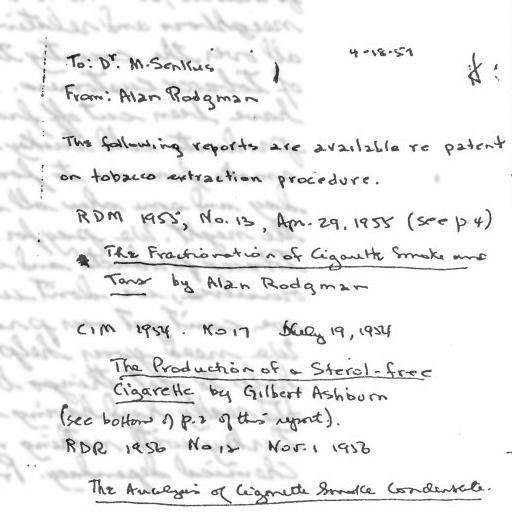 4-18-57
To: Dr. M. Senkus
From: Alan Rodgman
The following reports are available re patent
on tobacco extraction procedure.
RDM 1955, No. 13, Apr. 29, 1955 (see p. 4)
The Fractionation of Cigarette Smoke and
Tars by Alan Rodgman
CIM 1954. No 17 July 19, 1954
The Production of a Sterol-free
Cigarette by Gilbert Ashburn
(see bottom of p. 2 of this report).
RDR 1956 No 12 Nov. 1 1956
The Analysis of Cigarette Smoke Condensate.